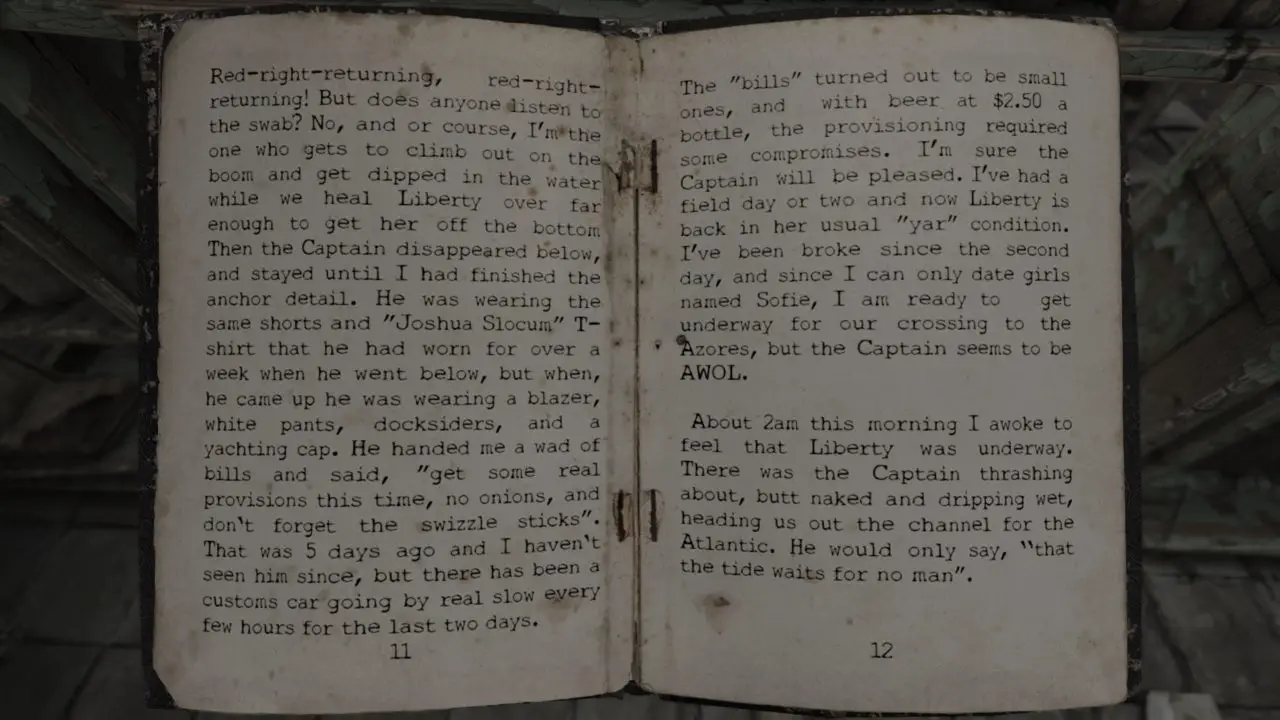 Red-right-returning, red-right-
returning! But does anyone listen to
the swab? No, and or course, I'm the
one who gets to climb out on the
boom and get dipped in the water
while we heal Liberty over far
enough to get her off the bottom
Then the Captain disappeared below,
and stayed until I had finished the
anchor detail. He was wearing the
same shorts and "Joshua Slocum" T-
shirt that he had worn for over a
week when he went below, but when,
he came up he was wearing a blazer,
white pants, docksiders, and a
yachting cap. He handed me a wad of
bills and said, "get some real
provisions this time, no onions, and
don't forget the swizzle sticks".
That was 5 days ago and I haven't
seen him since, but there has been a
customs car going by real slow every
few hours for the last two days.
11
The "bills" turned out to be small
ones, and with beer at $2.50 a
bottle, the provisioning required
some compromises. I'm sure the
Captain will be pleased. I've had a
field day or two and now Liberty is
back in her usual "yar" condition.
I've been broke since the second
day, and since I can only date girls
named Sofie, I am ready to get
underway for our crossing to the
Azores, but the Captain seems to be
AWOL.
About 2am this morning I awoke to
feel that Liberty was underway.
There was the Captain thrashing
about, butt naked and dripping wet,
heading us out the channel for the
Atlantic. He would only say, "that
the tide waits for no man".
12